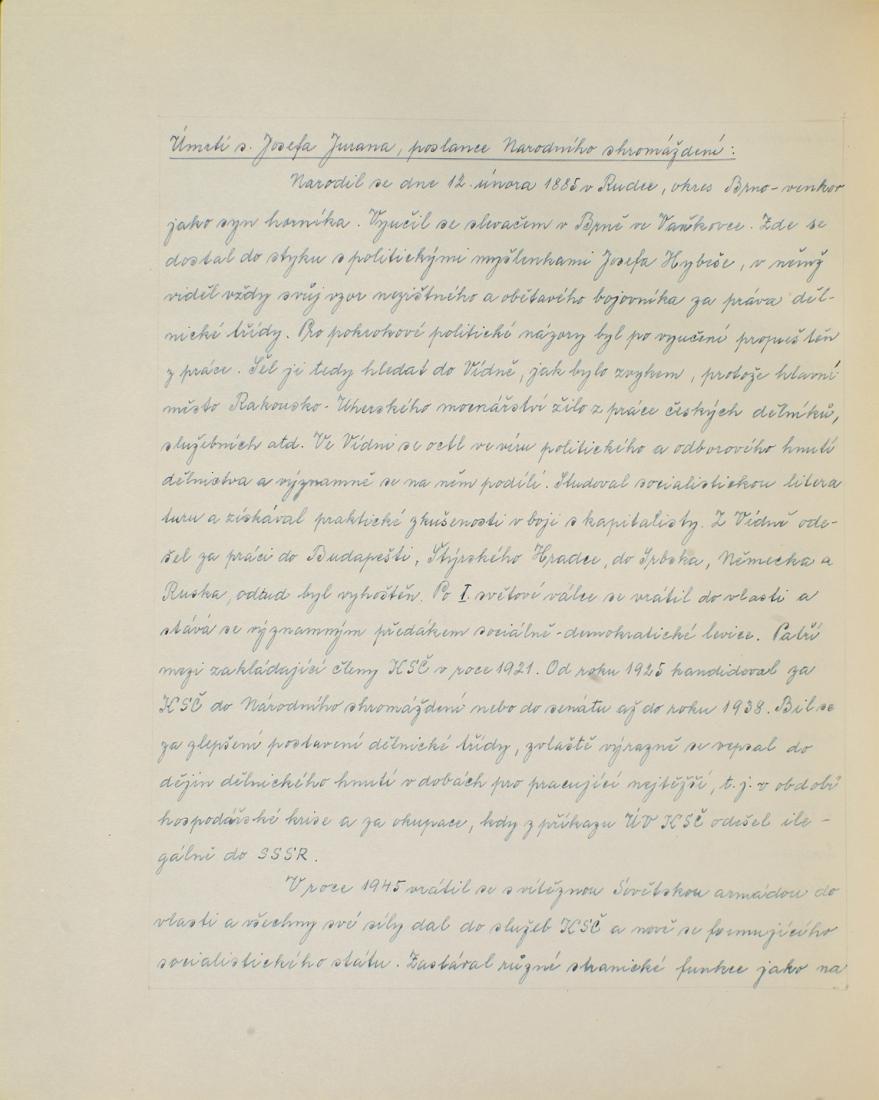 Úmrtí s. Josefa Jurana, poslance Narodního shromáždění:
Narodil se dne 12. února 1885 v Rudce, okres Brno-venkov
jako syn horníka. Vyučil se slevačem v Brně ve Vaňkovce. Zde se
dostal do styku s politickými myšlenkami Josefa Hybeše, v němž
viděl vždy svůj vzor nezištného a obětavého bojovníka za práva děl-
nické třídy. Pro pokrokové politické názory byl po vyučení propuštěn
z práce. Šel ji tedy hledat do Vídně, jak bylo zvykem, protože hlavní
město Rakousko-Uherského mocnářství žilo z práce českých dělníků,
služebních atd. Ve Vídni se octl ve víru politického a odborového hnutí
dělnictva a významně se na něm podílí. Studoval socialistickou litera
turu a získával praktické zkušenosti v boji s kapitalisty. Z Vídně ode-
šel za prácí do Budapešti, Štýrského Hradce, do Srbska, Německa a
Ruska, odtud byl vyhoštěn. Po I. světové válce se vrátil do vlasti a
stává se významným předákem sociálně-demokratické levice. Patří
mezi zakládající členy KSČ v roce 1921. Od roku 1925 kandidoval za
KSČ do Národního shromáždění nebo do senátu až do roku 1938. Bil se
za zlepšení postavení dělnické třídy, zvláště výrazně se vepsal do
dějin dělnického hnutí v dobách pro pracující nejtěžší, t.j. v období
hospodářské krise a za okupace, kdy z příkazu ÚV KSČ odešel ile-
gálně do SSSR.
V roce 1945 vrátil se s vítěznou Sovětskou armádou do
vlasti a všechny své síly dal do služeb KSČ a nově se formujícího
socialistického státu. Zastával různé stranické funkce jako na